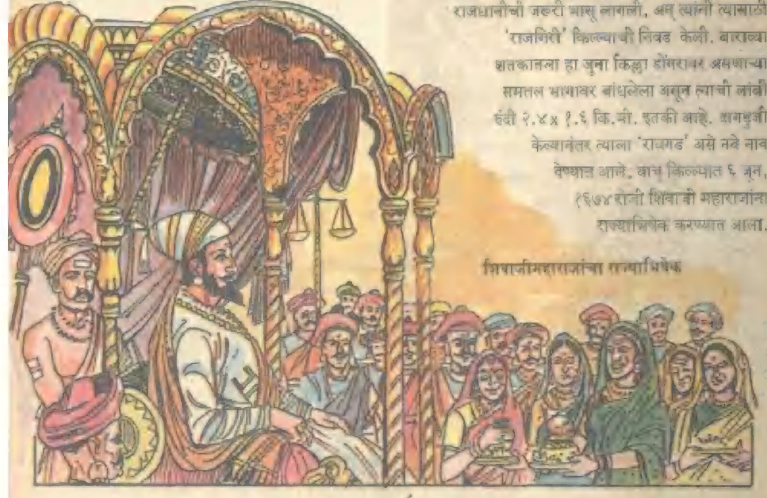 राजधानीची जरूरी भासू लागली, अन् त्यांनी त्यासाठी
'राजगिरी' किल्ल्याची निवड केली. बाराव्या
शतकातला हा जुना किल्ला डोंगरावर असणाऱ्या
समतल भागावर बांधलेला असून त्याची लांबी
रुंदी २.४ x १.६ कि.मी. इतकी आहे. डागडुजी
केल्यानंतर त्याला 'रायगड' असे नवे नाव
देण्यात आले. याच किल्ल्यात ६ जून,
१६७४ रोजी शिवाजी महाराजांना
राज्याभिषेक करण्यात आला.
शिवाजीमहाराजांचा राज्याभिषेक